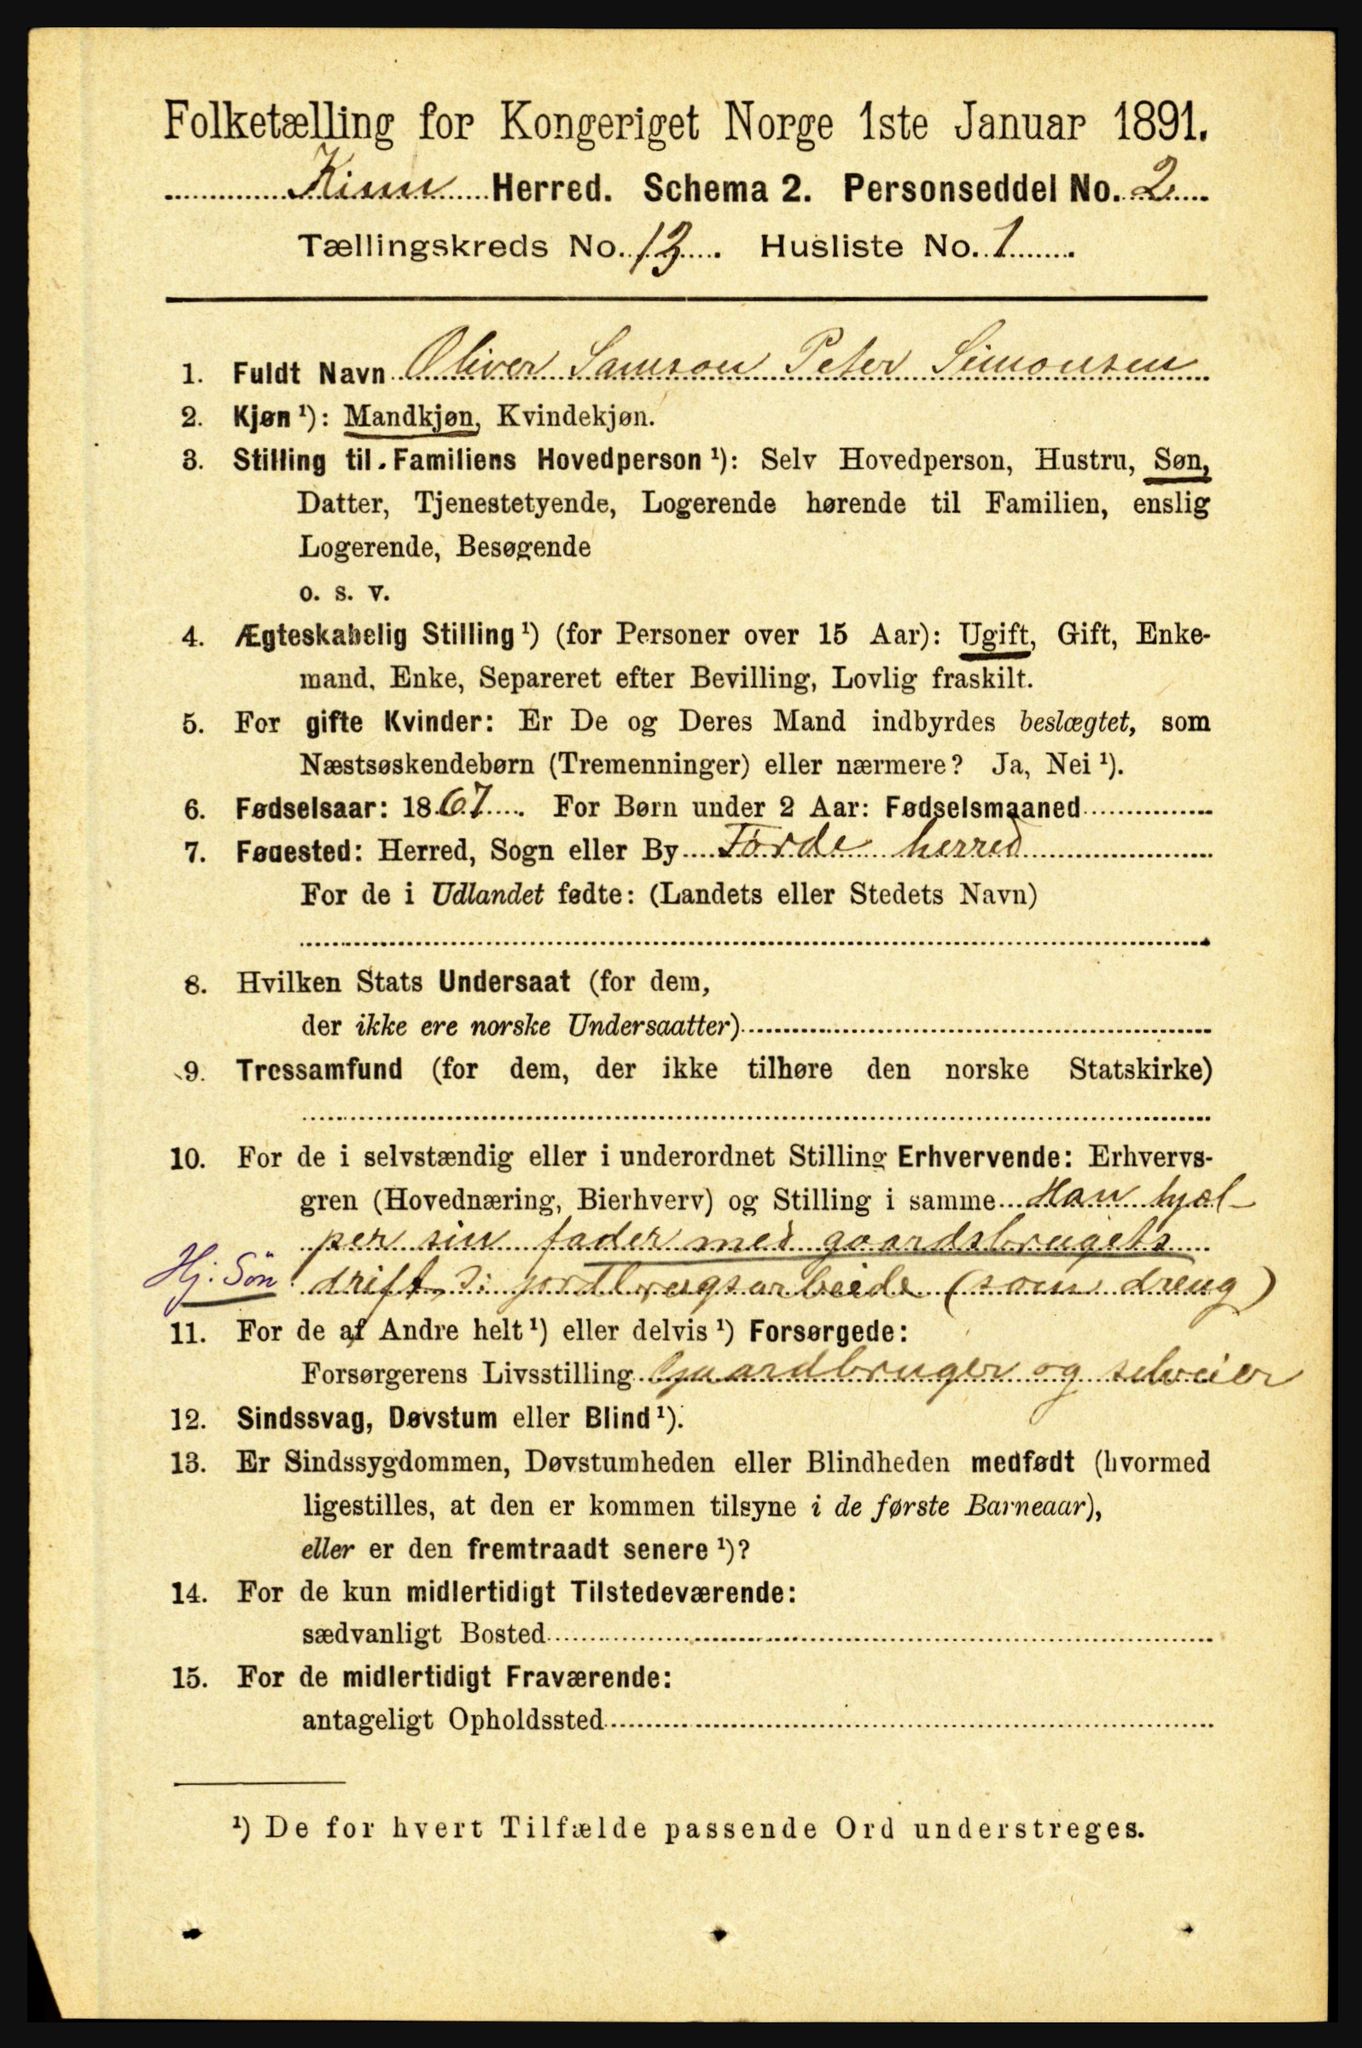 Folketælling for Kongeriget Norge 1ste Januar 1891.
Kinn Herred. Schema 2. Personseddel No. 2
Tællingskreds No. 13. Husliste No. 1
1. Fuldt Navn Oliver Samson Peter Simonsen
2. Kjøn¹): Mandkjøn, Kvindekjøn.
3. Stilling til Familiens Hovedperson¹): Selv Hovedperson, Hustru, Søn,
Datter, Tjenestetyende, Logerende hørende til Familien, enslig
Logerende, Besøgende
o. s. v.
4. Ægteskabelig Stilling¹) (for Personer over 15 Aar): Ugift, Gift, Enke-
mand, Enke, Separeret efter Bevilling, Lovlig fraskilt.
5. For gifte Kvinder: Er De og Deres Mand indbyrdes beslægtet, som
Næstsøskendebørn (Tremenninger) eller nærmere? Ja, Nei¹).
6. Fødselsaar: 1867. For Børn under 2 Aar: Fødselsmaaned
7. Fødested: Herred, Sogn eller By Førde herred
For de i Udlandet fødte: (Landets eller Stedets Navn)
8. Hvilken Stats Undersaat (for dem,
der ikke ere norske Undersaatter)
9. Trossamfund (for dem, der ikke tilhøre den norske Statskirke)
10. For de i selvstændig eller i underordnet Stilling Erhvervende: Erhvervs-
gren (Hovednæring, Bierhverv) og Stilling i samme Han hjæl-
per sin fader med gaardsbrugets
Hj. Søn drift, s: jordbrugsarbeide (som dreng)
11. For de af Andre helt¹) eller delvis¹) Forsørgede:
Forsørgerens Livsstilling Gaardbruger og selveier
12. Sindssvag, Døvstum eller Blind¹).
13. Er Sindssygdommen, Døvstumheden eller Blindheden medfødt (hvormed
ligestilles, at den er kommen tilsyne i de første Barneaar),
eller er den fremtraadt senere¹)?
14. For de kun midlertidigt Tilstedeværende:
sædvanligt Bosted
15. For de midlertidigt Fraværende:
antageligt Opholdssted
¹) De for hvert Tilfælde passende Ord understreges.